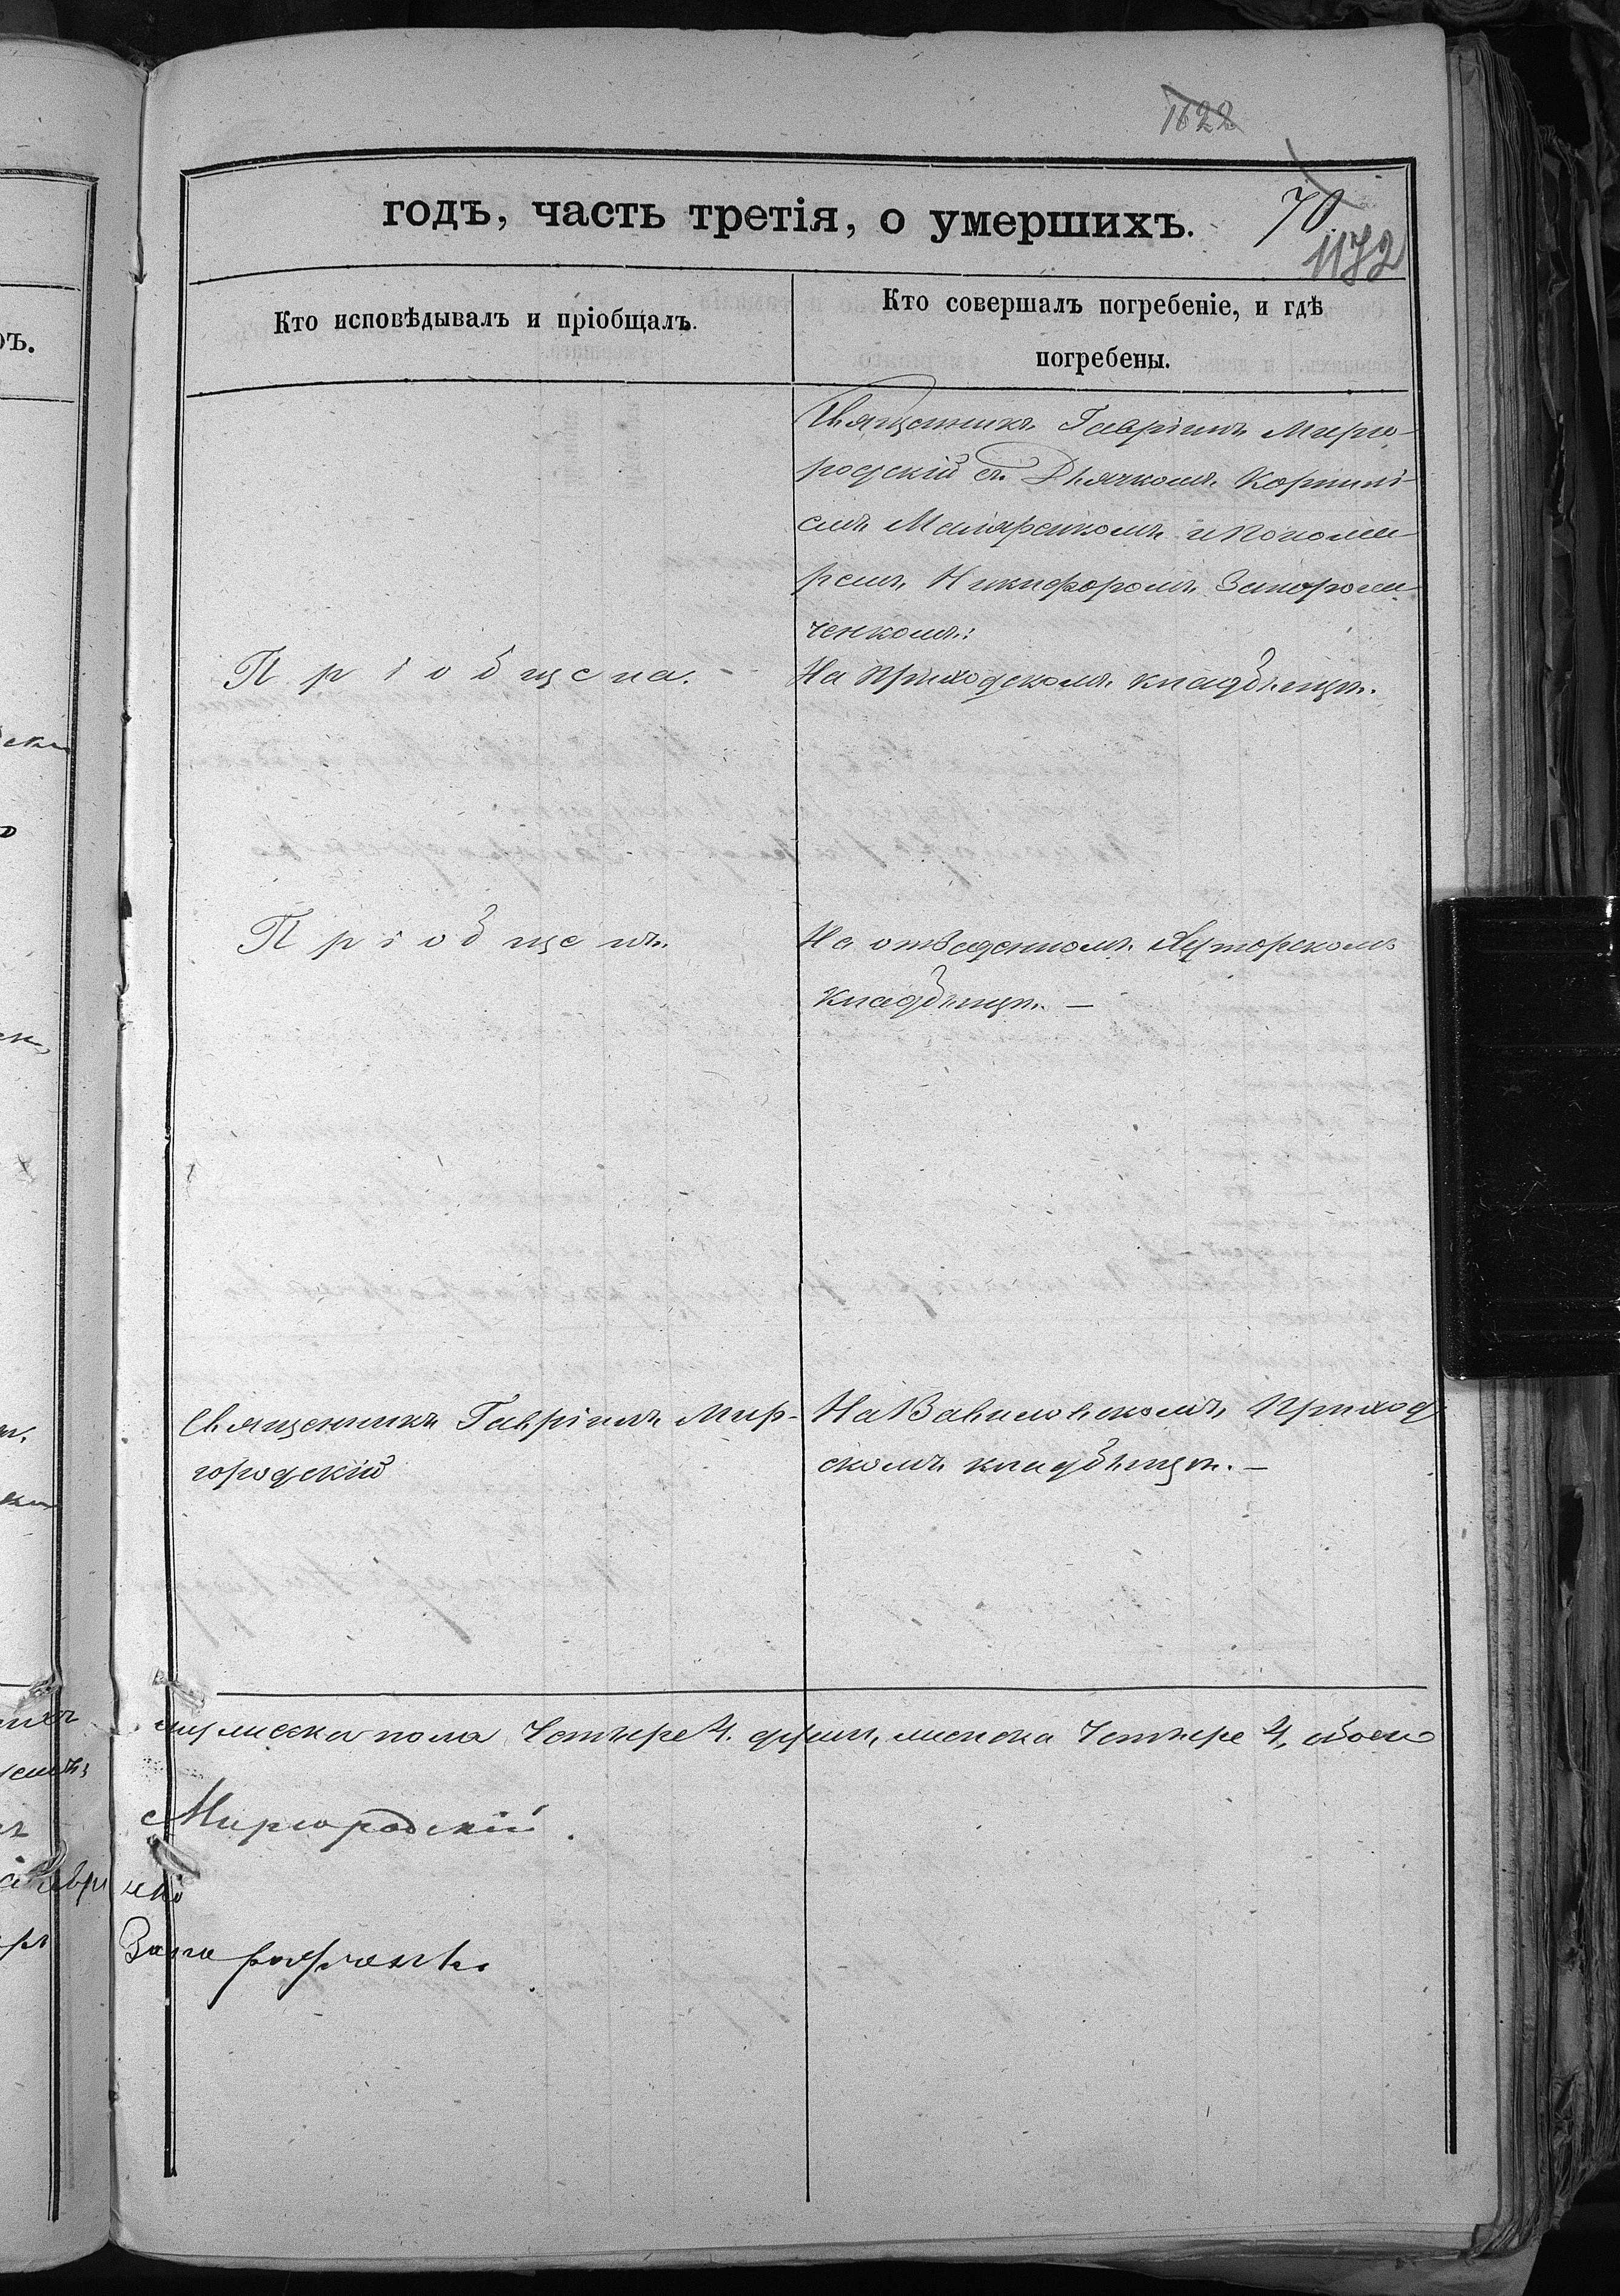 1622
годъ, часть третія, о умершихъ.
70
1172
Кто исповѣдывалъ и пріобщалъ.
Кто совершалъ погребеніе, и гдѣ
погребены.
Священникъ Гавріилъ Мирго-
родскій съ Дьячкомъ Корнилі-
емъ Маляренкомъ и Понома-
ремъ Никифоромъ Запорож-
ченкомъ:
Пріобщена.
На Приходскомъ кладбищѣ.
Пріобщенъ.
На отведенномъ Хуторскомъ
кладбищѣ. —
Священникъ Гавріилъ Мир-
городскій
На Вавиловскомъ Приход
скомъ кладбищѣ. —
мужеска пола Четыре 4. женска Четыре 4, обоего
Миргородскій.